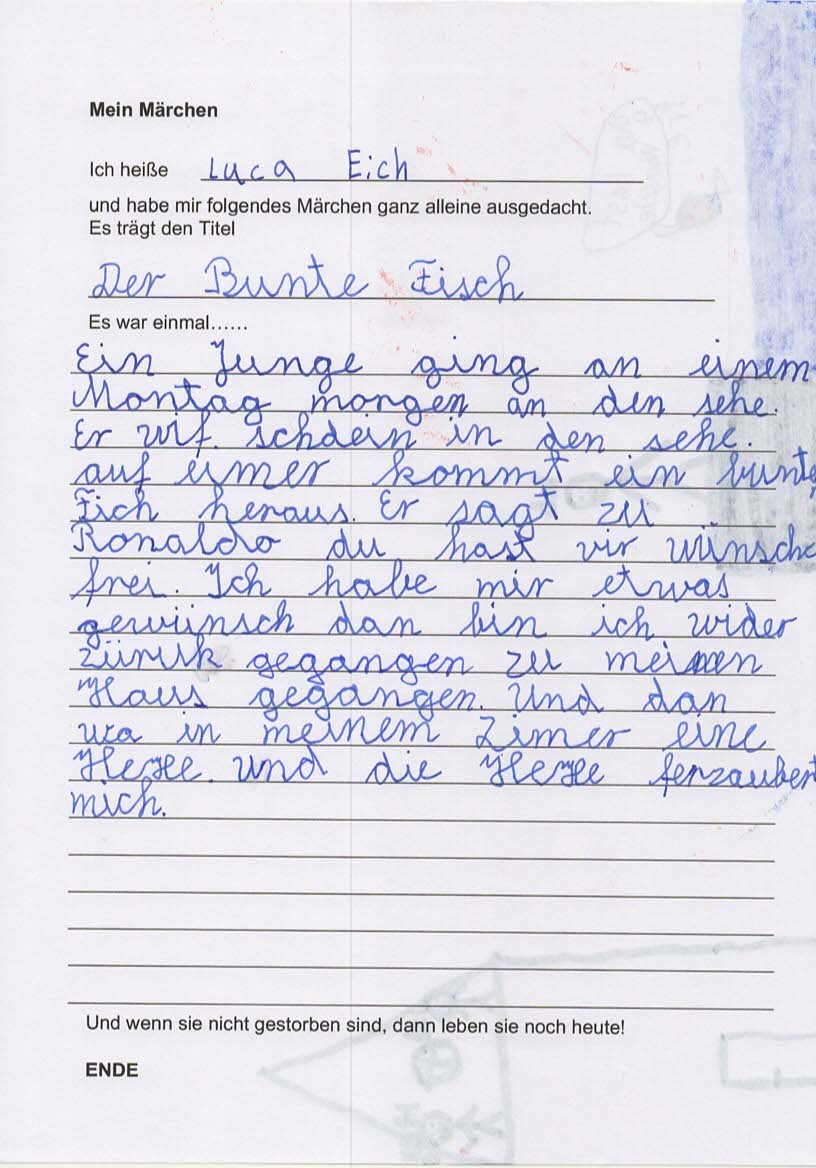 Mein Märchen
Ich heiße Luca Eich
und habe mir folgendes Märchen ganz alleine ausgedacht.
Es trägt den Titel
Der Bunte Fisch
Es war einmal......
Ein Junge ging an einem
Montag morgen an den sehe.
Er wif. schdein in den sehe.
auf eimer kommt ein bunte
Fich heraus. Er sagt zu
Ronaldo du hast vir wünsche
frei. Ich habe mir etwas
gewünsch dan bin ich wider
zürük gegangen zu meinen
Haus gegangen. Und dan
wa in meinem Zimer eine
Hexe. und die Hexe ferzaubert
mich.
Und wenn sie nicht gestorben sind, dann leben sie noch heute!
ENDE